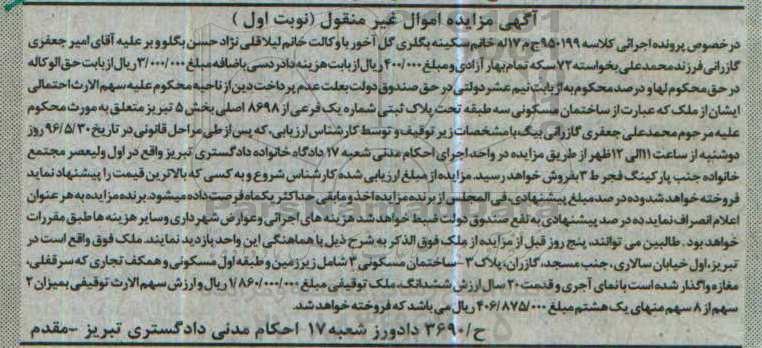 آگهی مزایده اموال غیر منقول (نوبت اول )
در خصوص پرونده اجرائی کلاسه ۹۵۰۱۹۹ج م ۱۷له خانم سکینه بگلری گل آخور با وکالت خانم لیلا قلی نژاد حسن بگلو و بر علیه آقای امیر جعفری
گازرانی فرزند محمدعلی بخواسته ۷۲ سکه تمام بهار آزادی و مبلغ ۴۰۰/۰۰۰ریال از بابت هزینه دادرسی باضافه مبلغ ۳/۰۰۰/۰۰۰ ریال از بابت حق الوکاله
در حق محکوم لها و درصد محکوم به از بابت نیم عشر دولتی در حق صندوق دولت بعلت عدم پرداخت دین از ناحیه محکوم علیه سهم الارث احتمالی
ایشان از ملک که عبارت از ساختمان مسکونی سه طبقه تحت پلاک ثبتی شماره یک فرعی از ۸۶۹۸ اصلی بخش ۵ تبریز متعلق به مورث محکوم
علیه مرحوم محمدعلی جعفری گازرانی بیگ با مشخصات زیر توقیف و توسط کارشناس ارزیابی، که پس از طی مراحل قانونی در تاریخ ۹۶/۵/۳۰ روز
دوشنبه از ساعت ۱۱الی ۱۲ظهر از طریق مزایده در واحد اجرای احکام مدنی شعبه ۱۷ دادگاه خانواده دادگستری تبریز واقع در اول ولیعصر مجتمع
خانواده جنب پارکینگ فجر ط ۳ بفروش خواهد رسید. مزایده از مبلغ ارزیابی شده کارشناس شروع و به کسی که بالاترین قیمت را پیشنهاد نماید
فروخته خواهد شد و ده درصد مبلغ پیشنهادی، فی المجلس از برنده مزایده اخذ و مابقی حداکثر یکماه فرصت داده میشود. برنده مزایده به هر عنوان
اعلام انصراف نماید ده درصد پیشنهادی به نفع صندوق دولت ضبط خواهد شد هزینه های اجرائی و عوارض شهرداری و سایر هزینه ها طبق مقررات
خواهد بود. طالبین می توانند، پنج روز قبل از مزایده از ملک فوق الذکر به شرح ذیل با هماهنگی این واحد بازدید نمایند. ملک فوق واقع است در
تبریز، اول خیابان سالاری، جنب مسجد، گازران، پلاک ۳ - ساختمان مسکونی ۳ شامل زیرزمین و طبقه اول مسکونی و همکف تجاری که سرقفلی،
مغازه واگذار شده است با نمای آجری و قدمت ۲۰ سال ارزش ششدانگ، ملک توقیفی مبلغ ۱/۸۶۰/۰۰۰/۰۰۰ ریال و ارزش سهم الارث توقیفی بمیزان ۲
سهم از ۸ سهم منهای یک هشتم مبلغ ۴۰۶/۸۷۵/۰۰۰ ریال می باشد که فروخته خواهد شد.
ح/۳۶۹۰ دادورز شعبه ۱۷ احکام مدنی دادگستری تبریز -مقدم